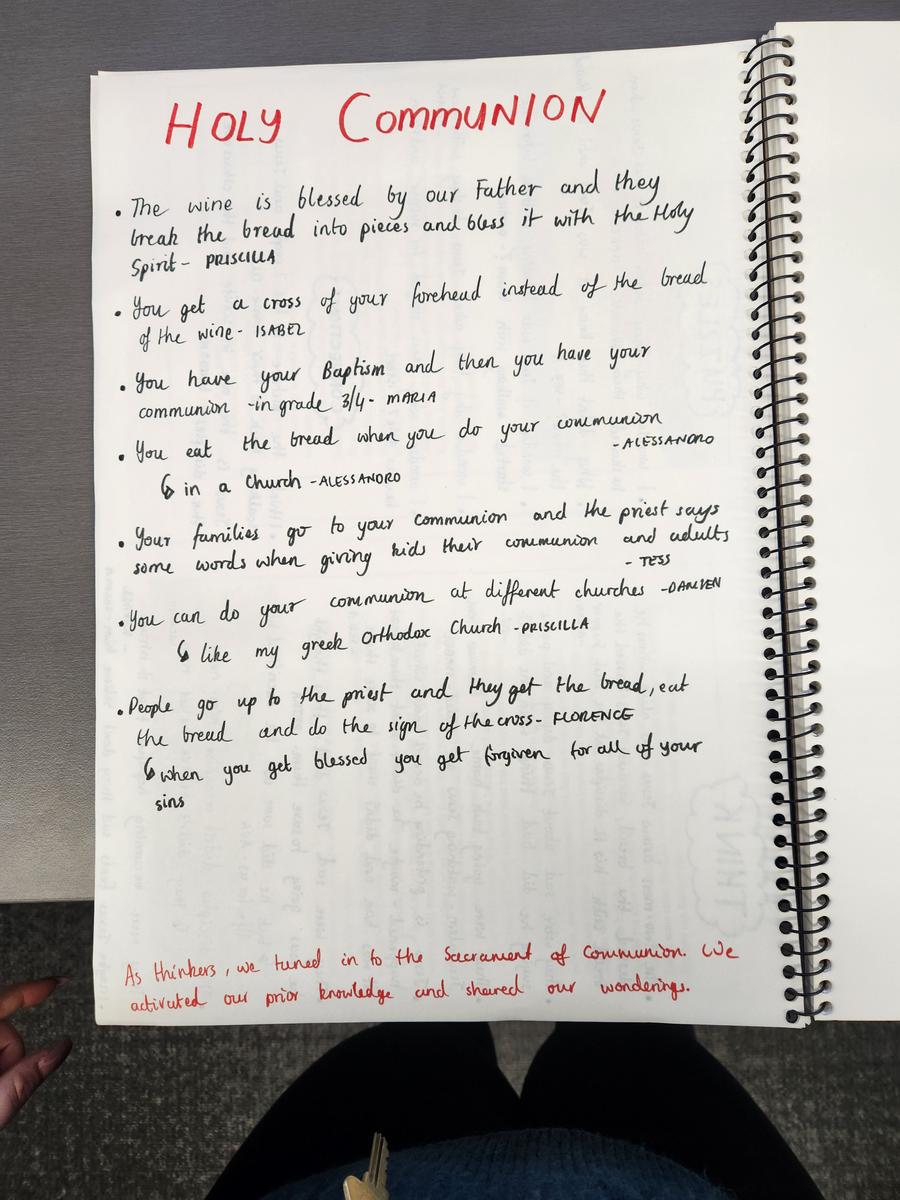 HOLY COMMUNION
• The wine is blessed by our Father and they
break the bread into pieces and bless it with the Holy
Spirit - PRISCILLA
• You get a cross of your forehead instead of the bread
of the wine - ISABEL
• You have your Baptism and then you have your
communion - in grade 3/4 - MARIA
• You eat the bread when you do your communion
- ALESSANDRO
↳ in a Church - ALESSANDRO
• Your families go to your communion and the priest says
some words when giving kids their communion and adults
- TESS
• You can do your communion at different churches - DAMIEN
↳ like my greek Orthodox Church - PRISCILLA
• People go up to the priest and they get the bread, eat
the bread and do the sign of the cross - FLORENCE
↳ when you get blessed you get forgiven for all of your
sins
As thinkers, we tuned in to the Sacrament of Communion. We
activated our prior knowledge and shared our wonderings.